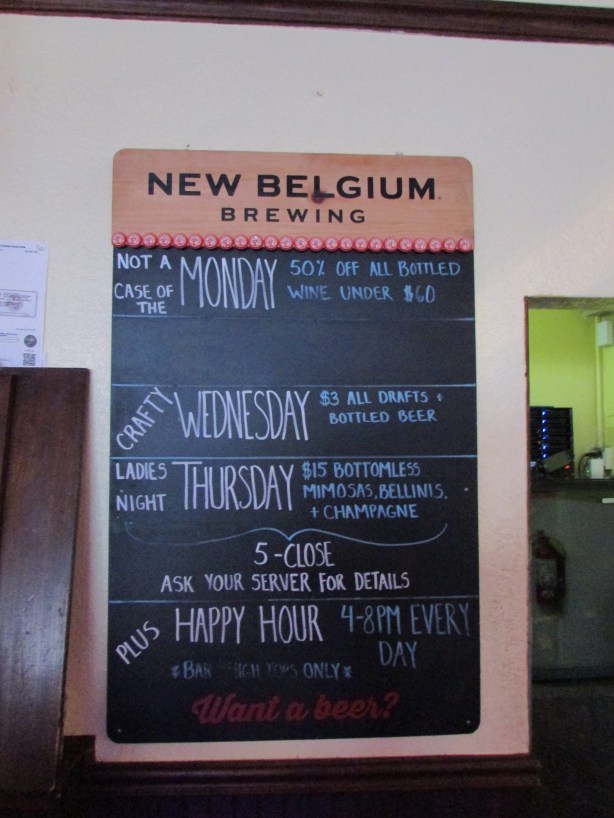 NEW BELGIUM
BREWING
NOT A
CASE OF
THE
MONDAY
50% OFF ALL BOTTLED
WINE UNDER $60
CRAFTY
WEDNESDAY
$3 ALL DRAFTS +
BOTTLED BEER
LADIES
NIGHT
THURSDAY
$15 BOTTOMLESS
MIMOSAS, BELLINIS,
+ CHAMPAGNE
5-CLOSE
ASK YOUR SERVER FOR DETAILS
PLUS
HAPPY HOUR
4-8PM EVERY
DAY
*BAR TOPS ONLY*
Want a beer?